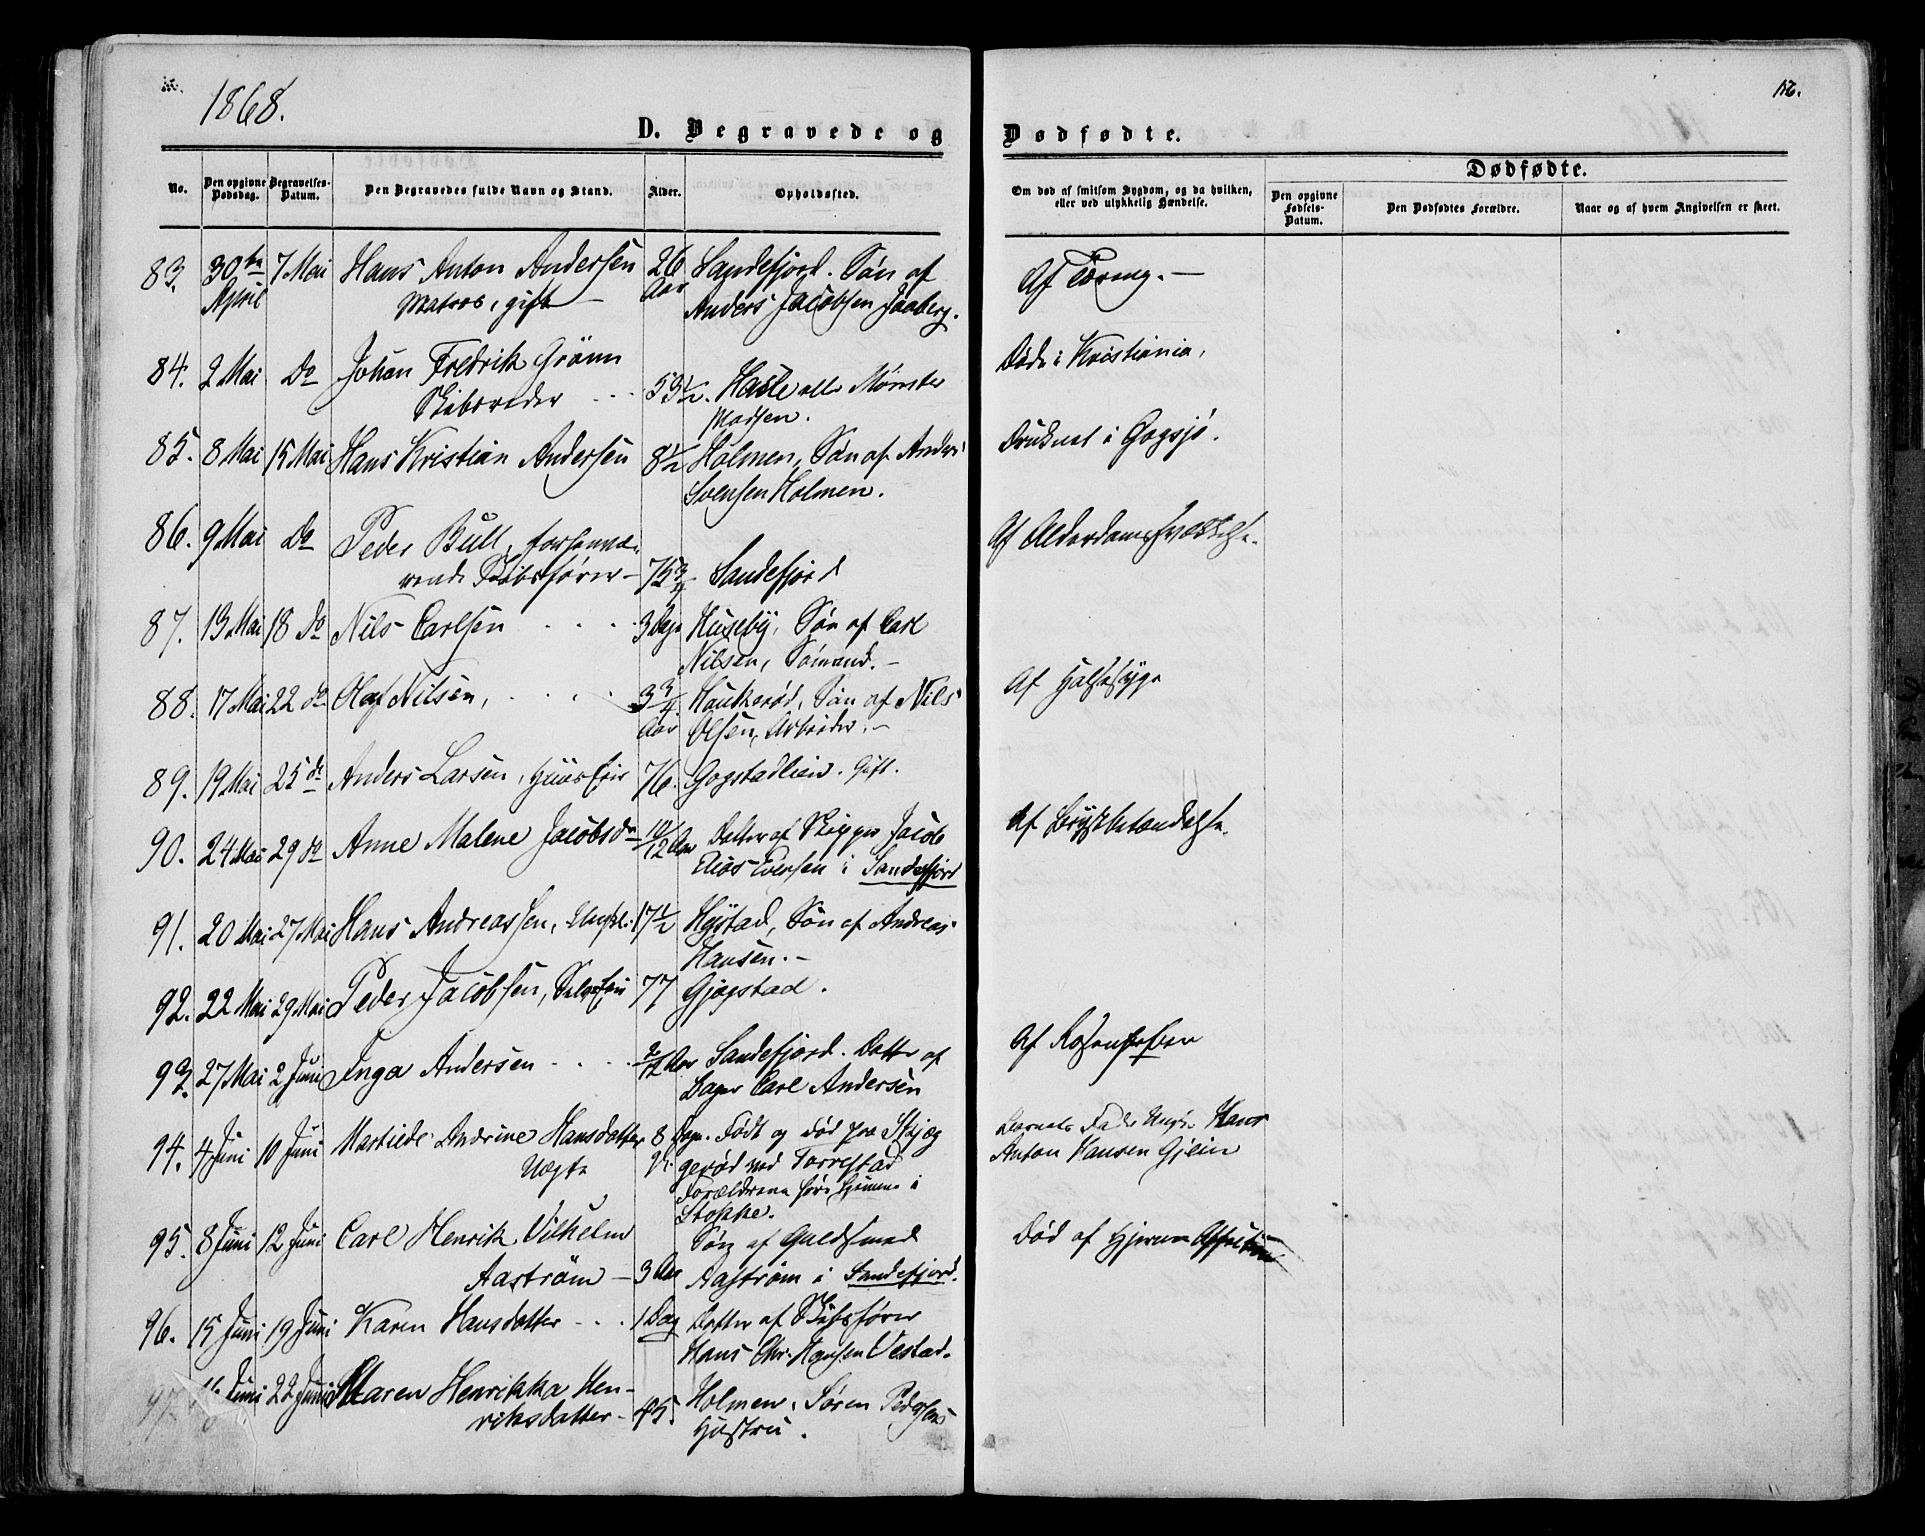 1868.
D. Begravede og Dødfødte.
Dødfødte.
No. Den opgivne Dødsdag. Begravelses-Datum. Den Begravedes fulde Navn og Stand. Alder. Opholdssted. Om død af smitsom Sygdom, og da hvilken, eller ved ulykkelig Hændelse. Den opgivne Fødsels-Datum. Den Dødfødtes Forældre. Naar og af hvem Angivelsen er skeet.
83. 30te 7 Mai Hans Anton Andersen 26 Sandefjord. Søn af Af Tæring. —
April Matros, gift — Aar Anders Jacobsen Jaaberg.
84. 2 Mai Do Johan Fredrik Grönn Døde i Kristiania,
Skibsreder - - - 53 1/2. Hasle eller
Madsen.
85. 8 Mai 15 Mai Hans Kristian Andersen 8 1/2 Holmen, Søn af Anders Druknet i Gogsjö.
Svensen Holmen.
86. 9 Mai Do Peder Bull, forhenvæ- Af Alderdomssvækkelse.
rende Skibsfører — 75 3/4 Sandefjord
87. 13 Mai 18 Do Nils Carlsen . . . . 3 Dage Huseby, Søn af Carl
Nilsen, Sömand. —
88. 17 Mai 22 do Olaf Nilsen, . . . . 3 3/4 Haukerød, Søn af Nils Af Halssyge
Aar Olsen, Arbeider. —
89. 19 Mai 25 do Anders Larsen, 76. Gogstadlien. Gift.
90. 24 Mai 29 do Anne Malene Jacobsdr 10/12 Aar Datter af Skipper Jacob Af Brystbetændelse.
Elias Evensen i Sandefjord
91. 20 Mai 27 Mai Hans Andreassen, Ungkl. 17 1/2 Hystad, Søn af Andreas
Hansen. —
92. 22 Mai 29 Mai Peder Jacobsen, 77 Gjogstad.
93. 27 Mai 2 Juni Inga Andersen - . . . 2/12 Aar Sandefjord. Datter af Af Rosenfeber
Bager Carl Andersen
94. 4 Juni 10 Juni Mathilde Andrine Hansdatter 8 Dage. Født og død paa Skjæg Barnets Fader Ungk. Hans
Uægte gerød ved Torrestad Anton Hansen Gjein
Forældrene høre hjemme i
Stokke.
95. 8 Juni 12 Juni Carl Henrik Vilhelm Søn af Guldsmed Død af Hjerne
Aaström — 3 Aar Aaström i Sandefjord.
96. 15 Juni 19 Juni Karen Hansdatter - - . 1 Dag Datter af Skibsfører
Hans Chr. Hansen Vestad.
97. 16 Juni 22 Juni Maren Henrikka Hen-
riksdatter — 45. Holmen. Søren Pedersens
Hustru.